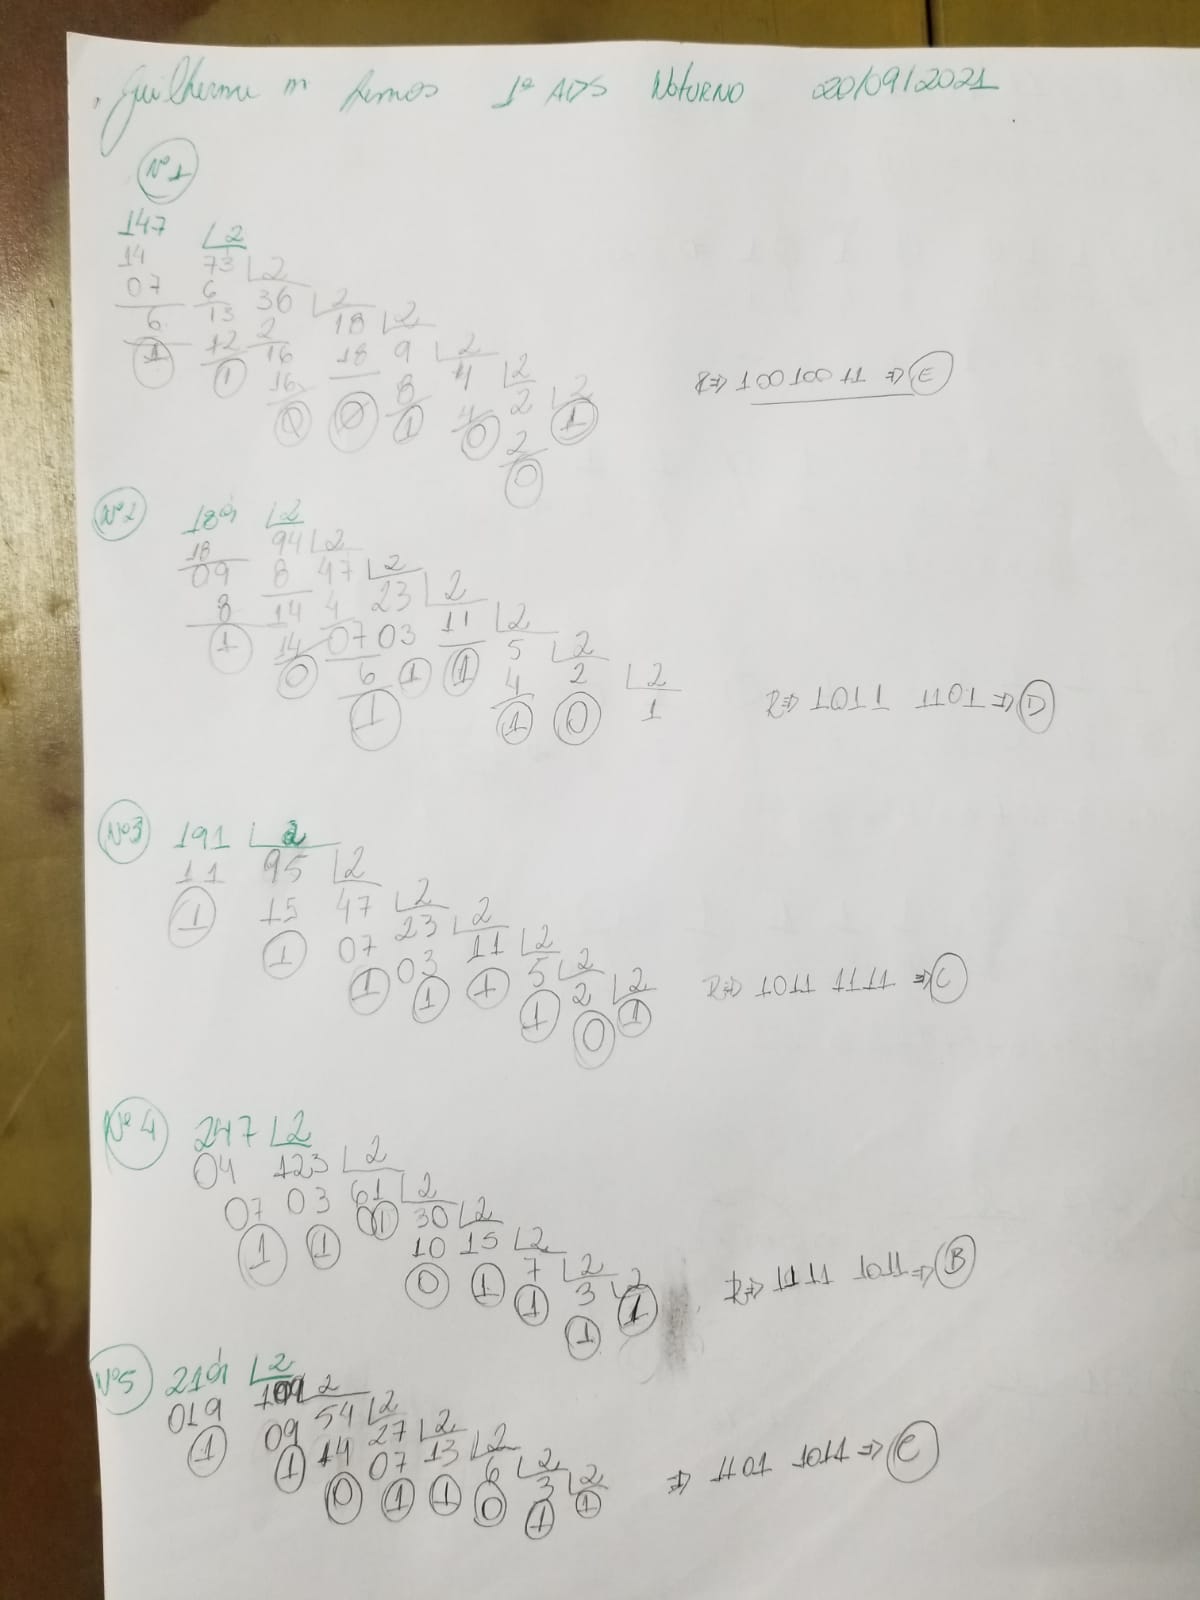 Guilherme M Ramos 1º ADS Noturno 20/09/2021
Nº1
147 L2
14 73 L2
07 6 36 L2
6 13 2 18 L2
1 12 16 18 9 L2
1 16 0 8 4 L2
0 1 4 2 L2
0 2 1
0
R=> 10010011 => E
Nº2
189 L2
18 94 L2
09 8 47 L2
8 14 4 23 L2
1 14 07 03 11 L2
0 6 1 1 5 L2
1 4 2 L2
1 0 1
R=> 1011 1101 => D
Nº3 191 L2
11 95 L2
1 15 47 L2
1 07 23 L2
1 03 11 L2
1 1 5 L2
1 2 L2
0 1
R=> 1011 1111 => C
Nº4 247 L2
04 123 L2
07 03 61 L2
1 1 01 30 L2
10 15 L2
0 1 7 L2
1 3 L2
1 1
R=> 1111 1011 => B
Nº5 219 L2
019 109 L2
1 09 54 L2
1 14 27 L2
0 07 13 L2
1 1 6 L2
0 3 L2
1 1
=> 1101 1011 => C